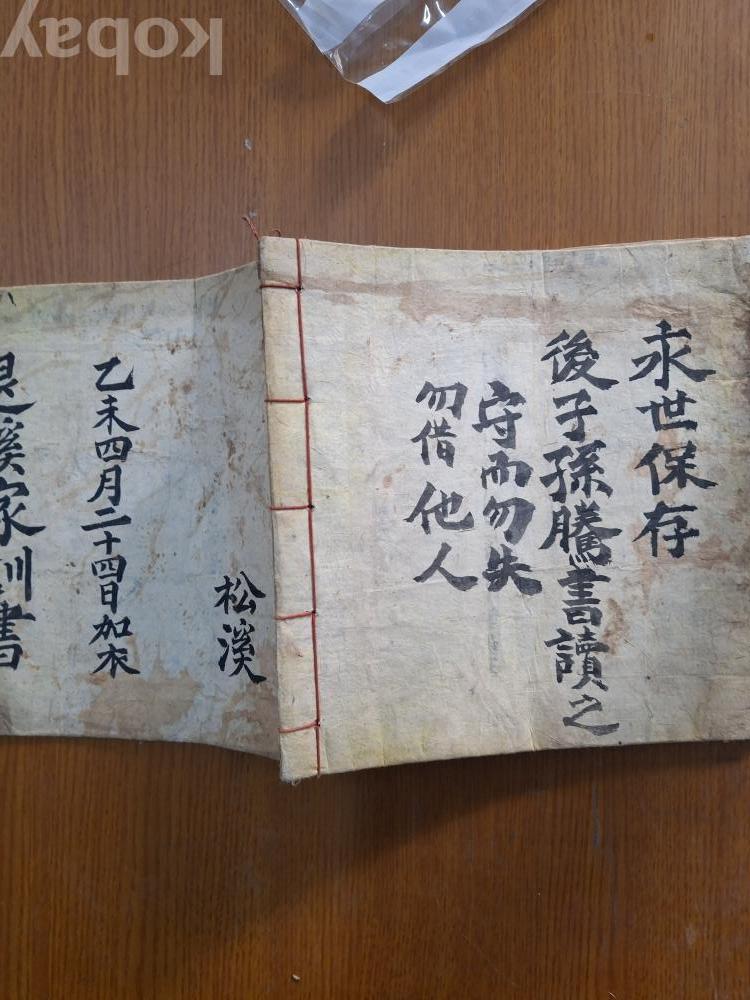 永世保存
後子孫騰書讀之
守而勿失
勿借他人
松溪
乙未四月二十四日加衣
退溪家訓書
kobay